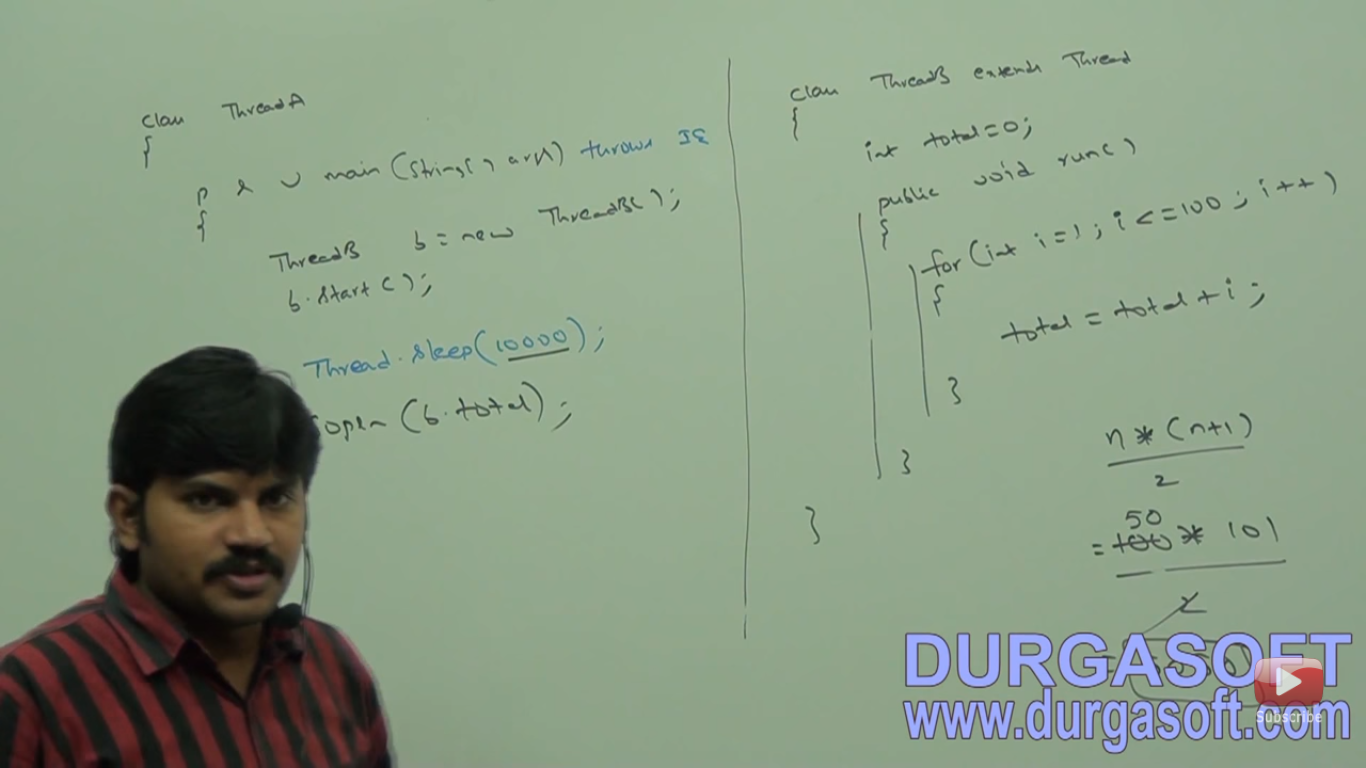 class ThreadA
{
p s v main(String[] args) throws IE
{
ThreadB b = new ThreadB();
b.start();
Thread.sleep(10000);
sopln(b.total);
class ThreadB extends Thread
{
int total=0;
public void run()
{
for(int i=1; i<=100; i++)
{
total = total + i;
}
}
}
n*(n+1)
2
50
= 100 * 101
2
DURGASOFT
www.durgasoft.com
Subscribe